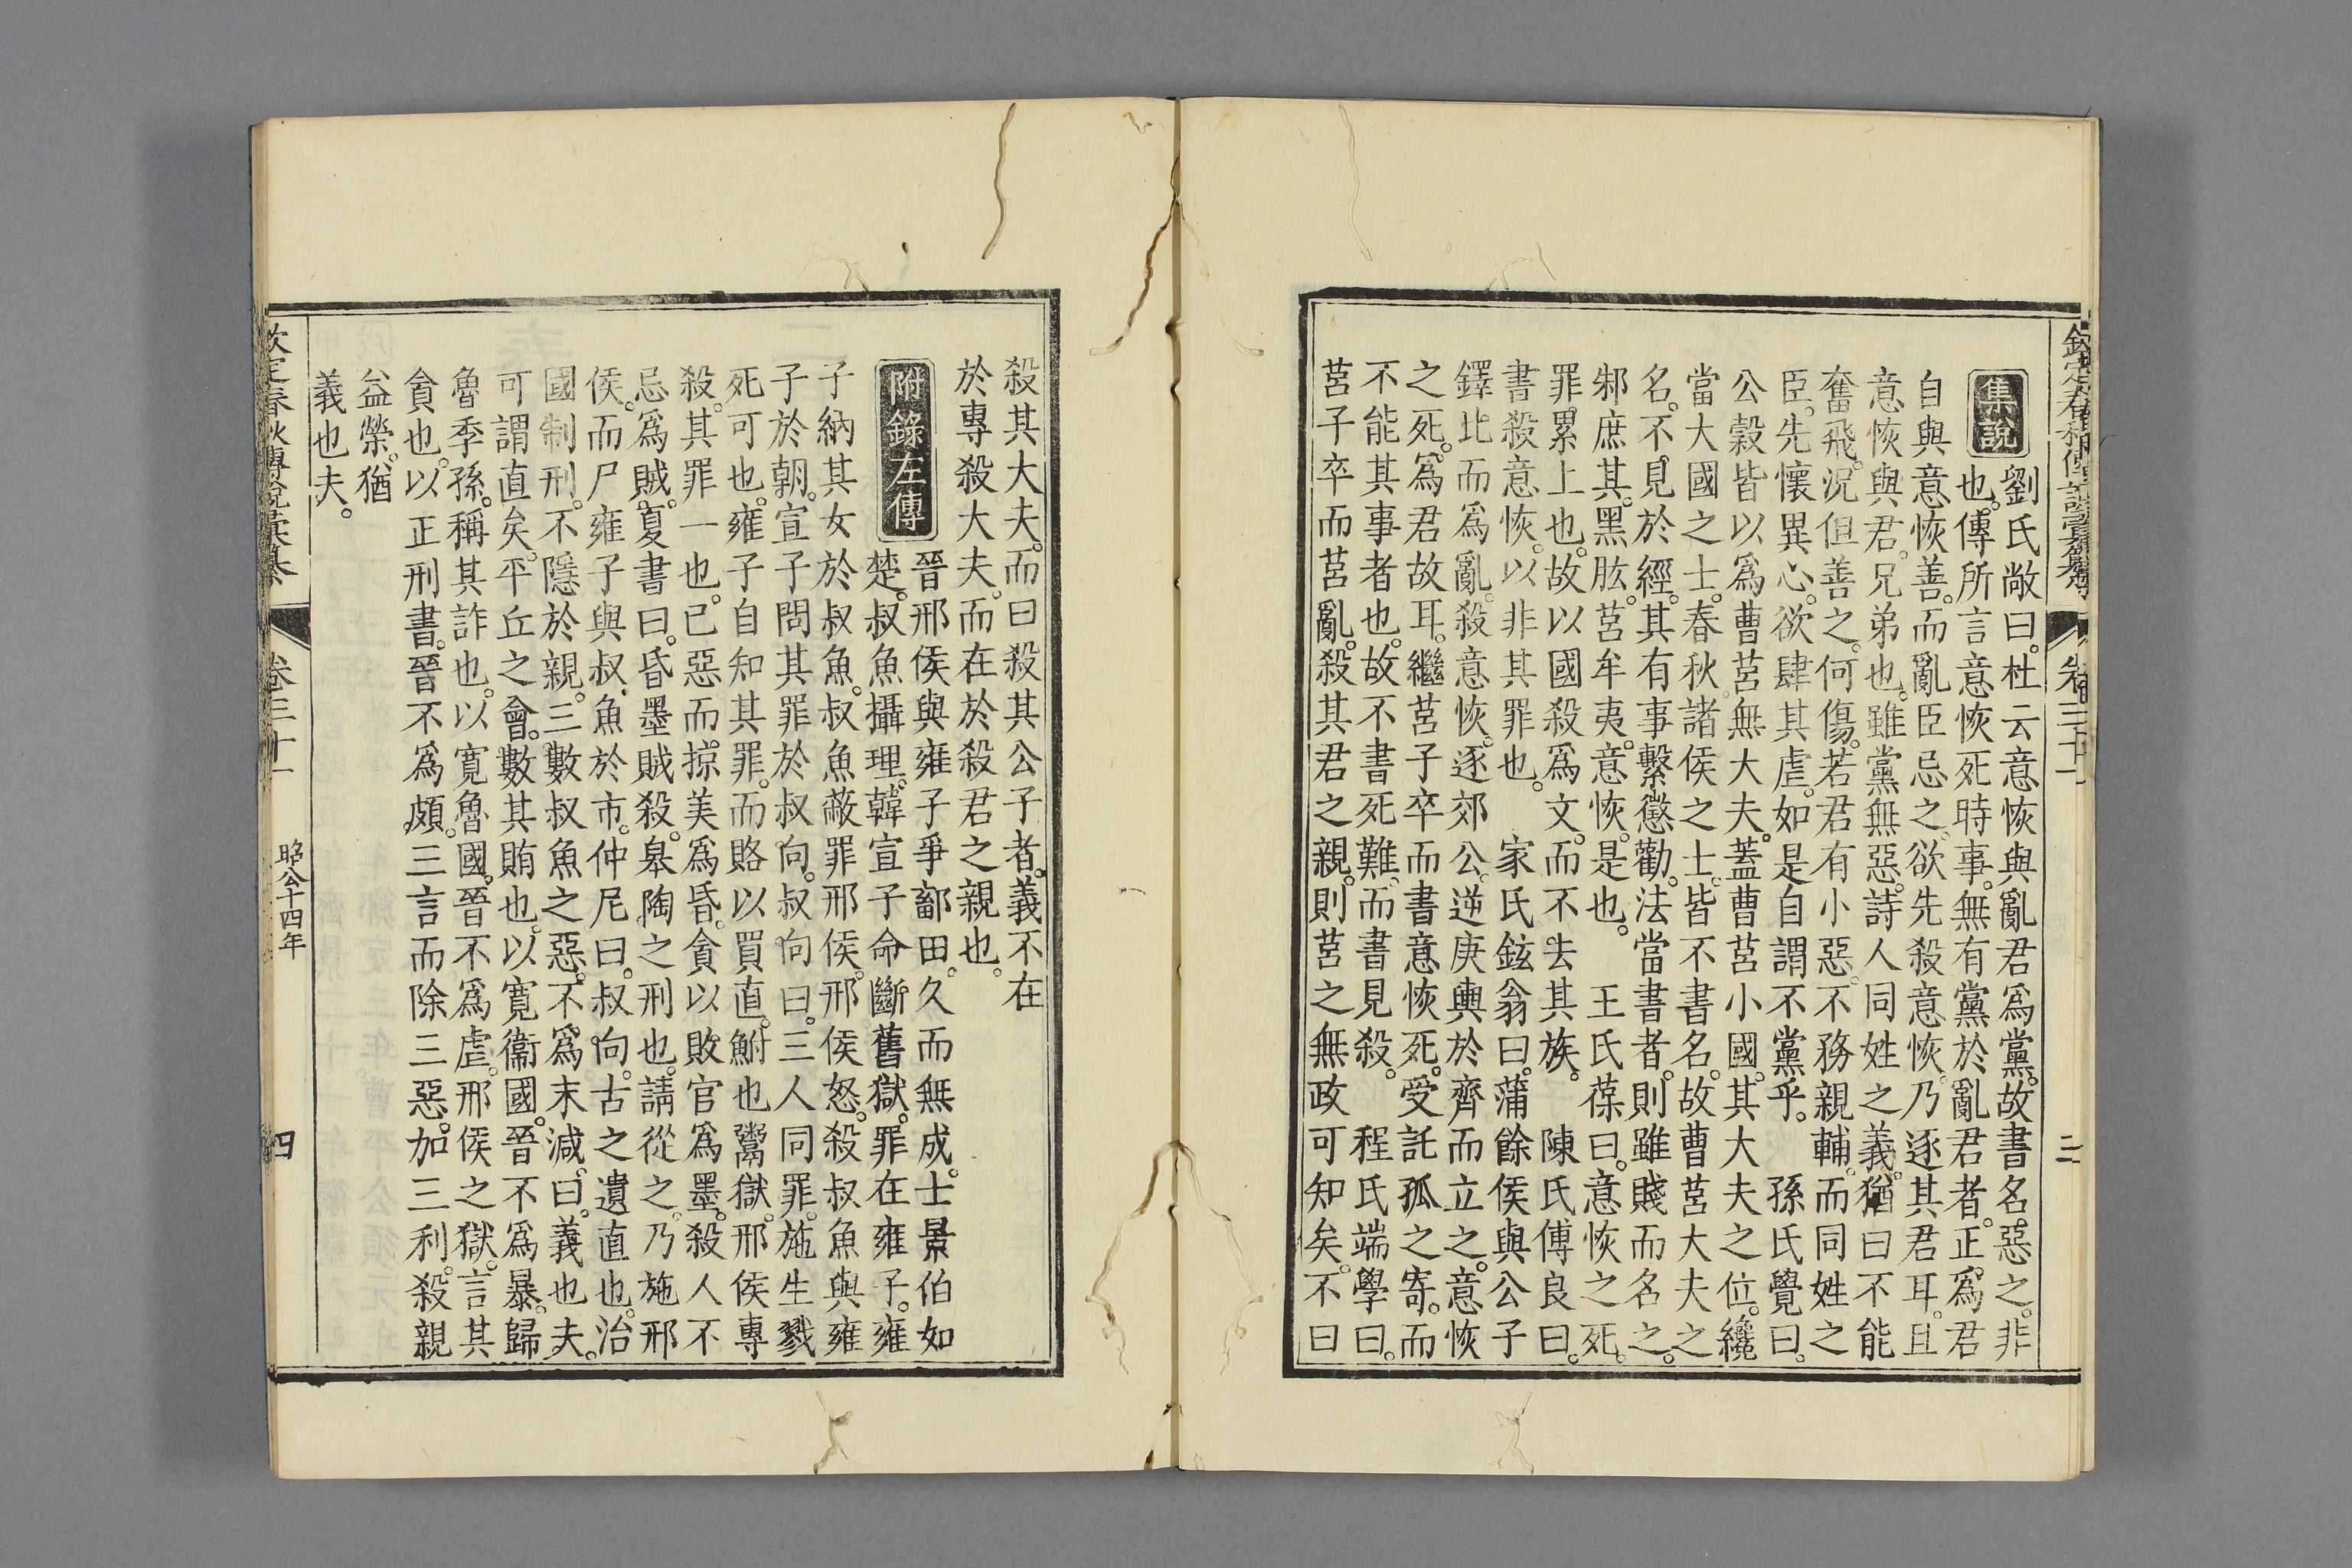 欽定春秋傳說彙纂 卷三十一
集說 劉氏敞曰。杜云意恢與亂君爲黨。故書名惡之。非
也。傳所言意恢死時事。無有黨於亂君者。正爲君
自與意恢善。而亂臣忌之。欲先殺意恢。乃逐其君耳。且
意恢與君。兄弟也。雖黨無惡。詩人同姓之義。猶曰不能
奮飛。況但善之。何傷。若君有小惡。不務親輔。而同姓之
臣。先懷異心。欲肆其虐。如是自謂不黨乎。　孫氏覺曰。
公穀皆以爲曹莒無大夫。蓋曹莒小國。其大夫之位。纔
當大國之士。春秋諸侯之士。皆不書名。故曹莒大夫之
名。不見於經。其有事繫懲勸。法當書者。則雖賤而名之。
邾庶其。黑肱。莒牟夷。意恢。是也。　王氏葆曰。意恢之死。
罪累上也。故以國殺爲文。而不去其族。　陳氏傅良曰。
書殺意恢。以非其罪也。　家氏鉉翁曰。蒲餘侯與公子
鐸比而爲亂。殺意恢。逐郊公。逆庚輿於齊而立之。意恢
之死。爲君故耳。繼莒子卒而書意恢死。受託孤之寄。而
不能其事者也。故不書死難。而書見殺。　程氏端學曰。
莒子卒而莒亂。殺其君之親。則莒之無政可知矣。不曰
殺其大夫。而曰殺其公子者。義不在
於專殺大夫。而在於殺君之親也。
附錄左傳 晉邢侯與雍子爭鄐田。久而無成。士景伯如
楚。叔魚攝理。韓宣子命斷舊獄。罪在雍子。雍
子納其女於叔魚。叔魚蔽罪邢侯。邢侯怒。殺叔魚與雍
子於朝。宣子問其罪於叔向。叔向曰。三人同罪。施生戮
死可也。雍子自知其罪。而賂以買直。鮒也鬻獄。邢侯專
殺。其罪一也。己惡而掠美爲昏。貪以敗官爲墨。殺人不
忌爲賊。夏書曰。昏墨賊殺。皋陶之刑也。請從之。乃施邢
侯。而尸雍子與叔魚於市。仲尼曰。叔向。古之遺直也。治
國制刑。不隱於親。三數叔魚之惡。不爲末減。曰。義也夫。
可謂直矣。平丘之會。數其賄也。以寬衞國。晉不爲暴。歸
魯季孫。稱其詐也。以寬魯國。晉不爲虐。邢侯之獄。言其
貪也。以正刑書。晉不爲頗。三言而除三惡。加三利。殺親
益榮。猶
義也夫。
欽定春秋傳說彙纂 卷三十一 昭公十四年 四